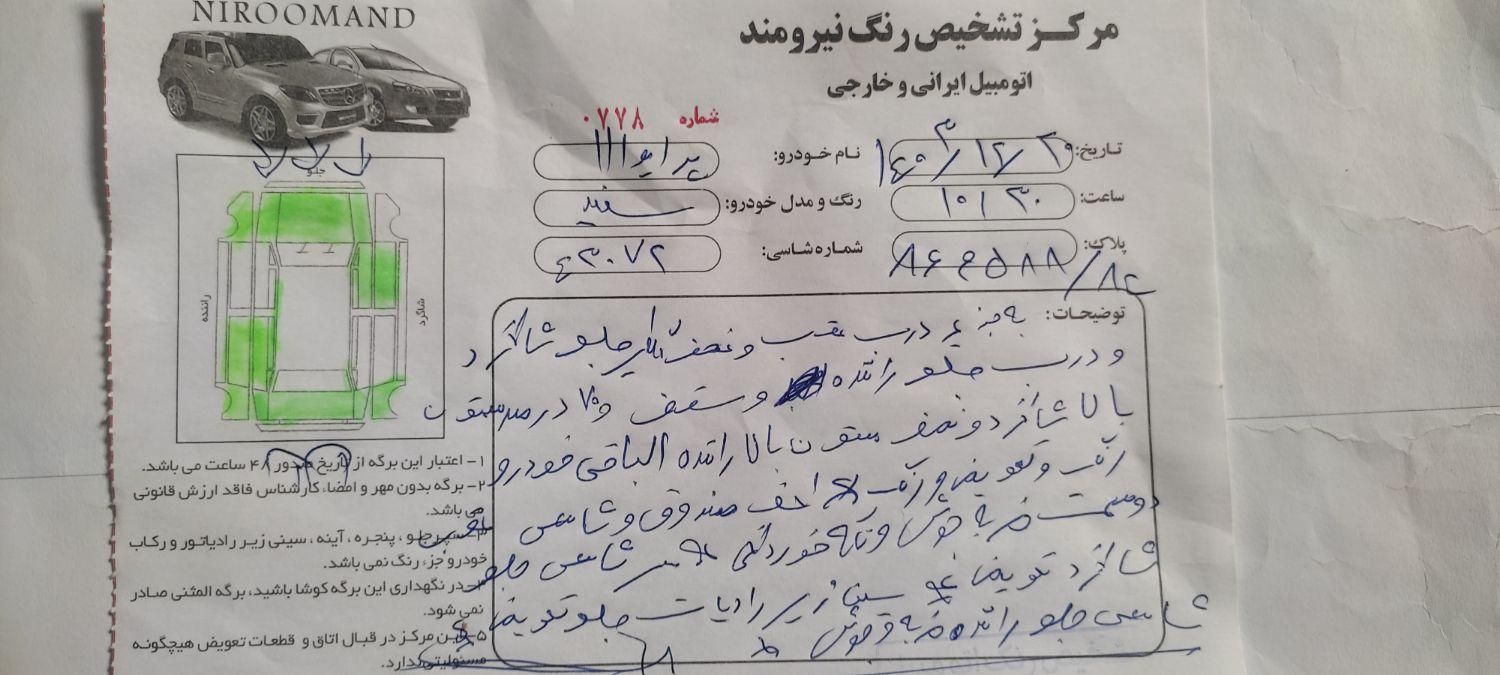 NIROOMAND
مرکز تشخیص رنگ نیرومند
اتومبیل ایرانی و خارجی
شماره ۰۷۷۸
تاریخ: ۱۴۰۳/۱۲/۲۹
نام خودرو: پراید ۱۱۱
ساعت: ۱۰/۳۰
رنگ و مدل خودرو: سفید
پلاک:
شماره شاسی: ۴۳۰۷۲
جلو
راننده
شاگرد
توضیحات: به جز درب عقب و نصف گلگیر جلو شاگرد
و درب جلو راننده و سقف و ۷۰ درصد ستون
بالا شاگرد و نصف ستون بالا راننده الباقی خودرو
رنگ و تعویض و رنگ کف صندوق و شاسی عقب
دو سمت ضربه جوش و تابه خوردگی سر شاسی جلو
شاگرد تعویض سینی زیر رادیات جلو تعویض
شاسی جلو راننده ضربه و جوش
۱- اعتبار این برگه از تاریخ صدور ۴۸ ساعت می باشد.
۲- برگه بدون مهر و امضاء کارشناس فاقد ارزش قانونی
می باشد.
۳- سپر جلو، پنجره، آینه، سینی زیر رادیاتور و رکاب
خودرو جزء رنگ نمی باشد.
۴- در نگهداری این برگه کوشا باشید، برگه المثنی صادر
نمی شود.
۵- این مرکز در قبال اتاق و قطعات تعویض هیچگونه
مسئولیتی ندارد.